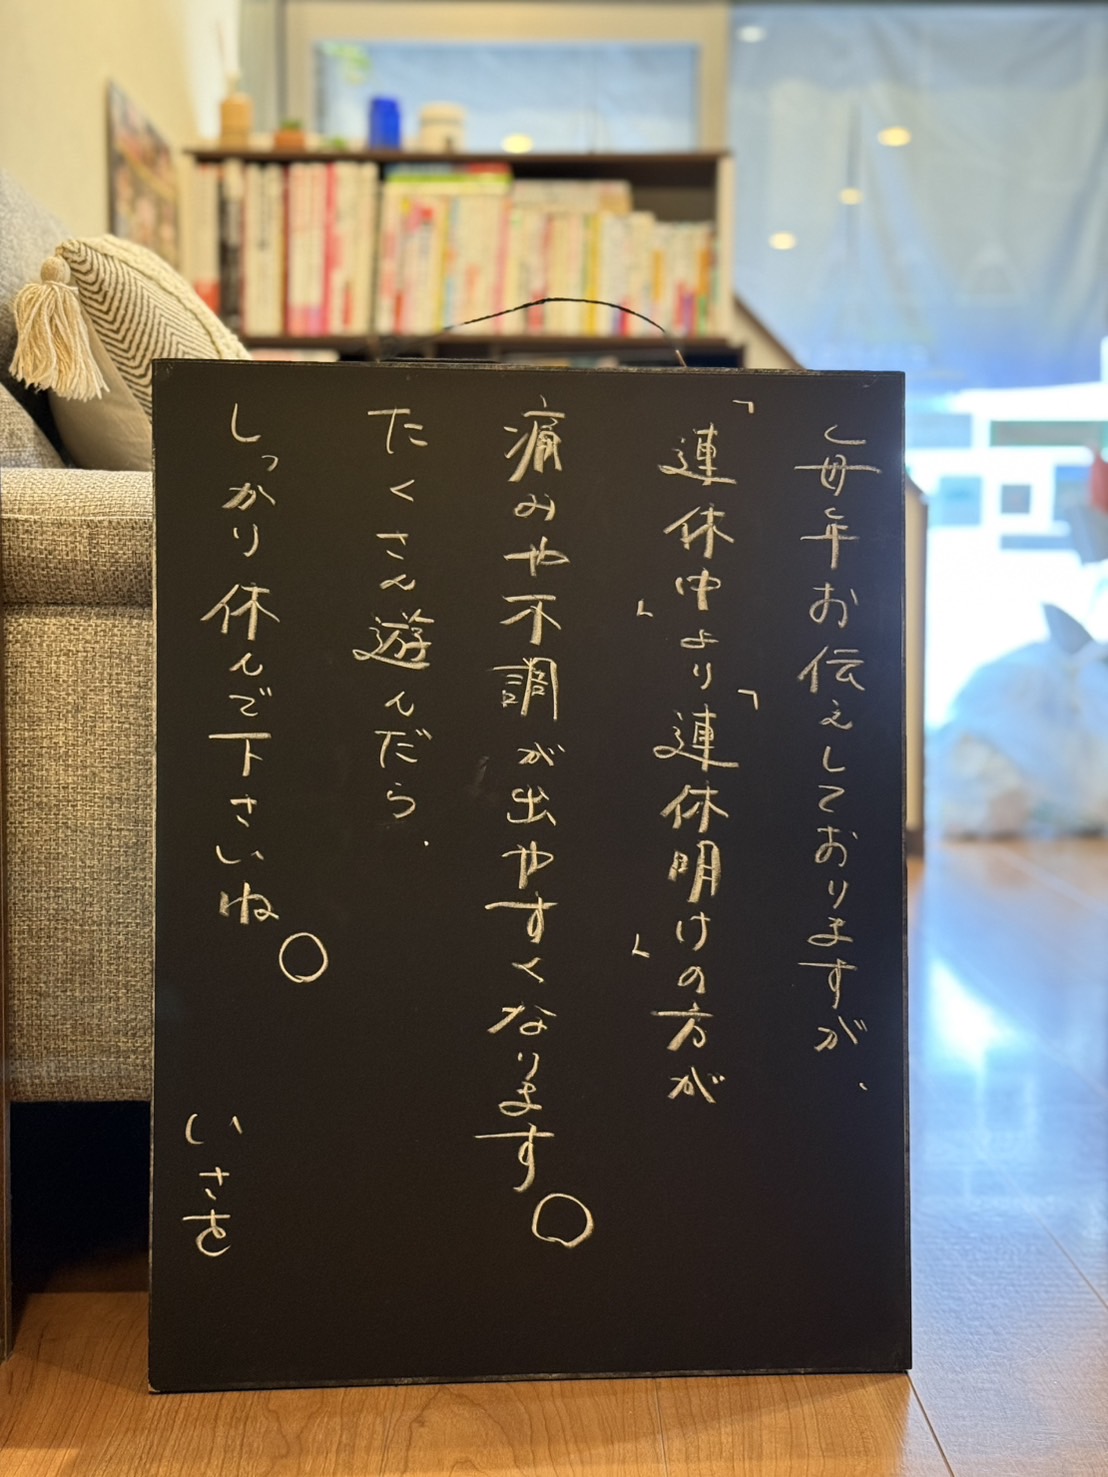 毎年お伝えしておりますが、
「連休中」より「連休明け」の方が
痛みや不調が出やすくなります。
たくさん遊んだら、
しっかり休んで下さいね。
いさを